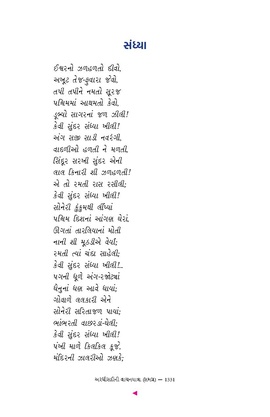 સંધ્યા
ઈશ્વરનો ઝળહળતો દીવો,
અખૂટ તેજ-ફુવારા જેવો,
તપી તપીને નમતો સૂરજ
પશ્ચિમમાં આથમતો કેવો,
ડૂબ્યો સાગરનાં જળ ઝીલી!
કેવી સુંદર સંધ્યા ખીલી!
અંગ સજી સાડી નવરંગી,
વાદળીઓ હળતી ને મળતી,
સિંદૂર સરખી સુંદર એની
લાલ કિનારી શી ઝળહળતી!
એ તો રમતી રાસ રસીલી;
કેવી સુંદર સંધ્યા ખીલી!
સોનેરી કુંકુમથી લીંપ્યાં
પશ્ચિમ દિશનાં આંગણ ઘેરાં,
ઊગતાં તારલિયાનાં મોતી
નાની શી મૂઠડીએ વેર્યાં;
રમતી ત્યાં ચંદા સાહેલી;
કેવી સુંદર સંધ્યા ખીલી!..
પગની ધૂળે અંગ-રજોટ્યાં
ધેનુનાં ધણ આવે ધાવાં;
ગોવાળે લલકારી એને
સોનેરી સરિતાજળ પાવાં;
ભાંભરતી વાછરડાં-ઘેલી;
કેવી સુંદર સંધ્યા ખીલી!
પંખી માળે કિલકિલ કૂજે,
મંદિરની ઝાલરીઓ ઝણકે;
અરધીસદીની વાચનયાત્રા — 1331